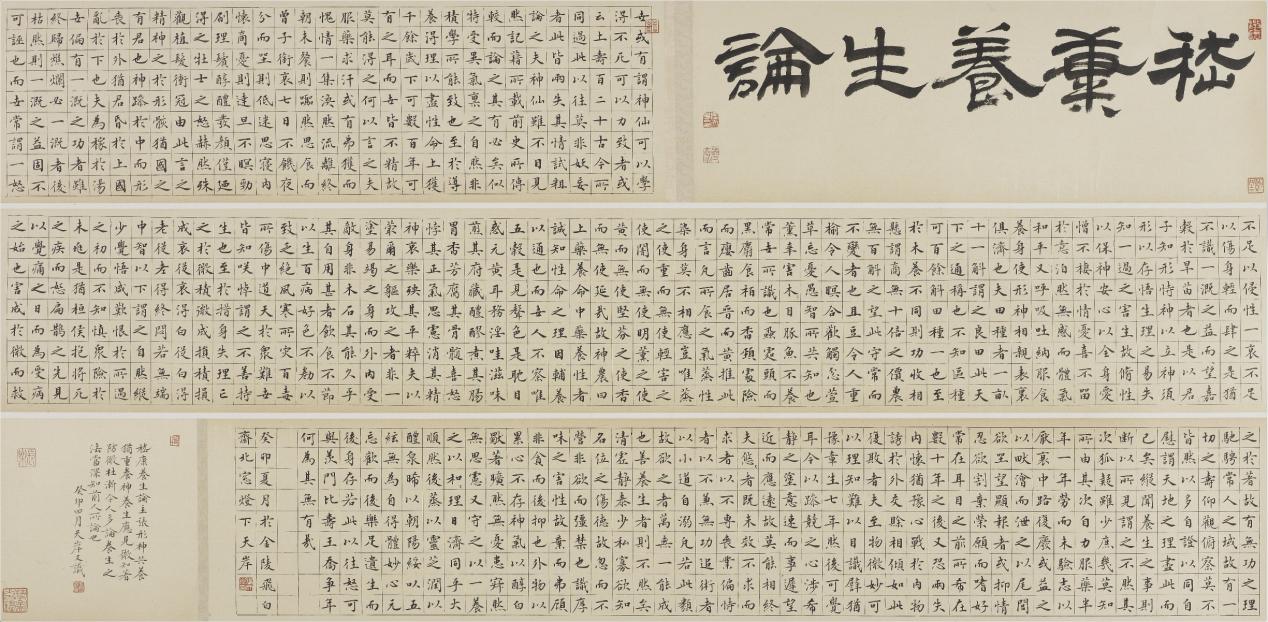 嵇康養生論
世或有謂神仙可以學
得不死可以力致者或
云上壽百二十古今所
同過此以往莫非妖妄
者此皆兩失其情試粗
論之夫神仙雖不目見
然記籍所載前史所傳
較而論之其有必矣似
特受異氣稟之自然非
積學所能致也至於導
養得理以盡性命上獲
千餘歲下可數百年可
有之耳而世皆不精故
莫能得之何以言之夫
服藥求汗或有弗獲而
愧情一集渙然流離終
朝未餐則囂然思食而
曾子銜哀七日不飢夜
分而坐則低迷思寢內
懷殷憂則達旦不瞑勁
刷理鬢醇醴發顏僅乃
得之壯士之怒赫然殊
觀植髮衝冠由此言之
精神之於形骸猶國之
有君也神躁於中而形
喪於外猶君昏於上國
亂於下也夫為稼於湯
世偏有一溉之功者雖
終歸燋爛必一溉者後
枯然則一溉之益固不
可誣也而世常謂一怒
不足以侵性一哀不足
以傷身輕而肆之是猶
不識一溉之益而望嘉
穀於旱苗者也是以君
子知形恃神以立神須
形以存悟生理之易失
知一過之害生故脩性
以保神安心以全身愛
憎不棲於情憂喜不留
於意泊然無感而體氣
和平又呼吸吐納服食
養身使形神相親表裏
俱濟也夫田種者一畝
十一斛謂之良田此天
下之通稱也不知區種
可百餘斛田種一也至
於木養不同則功收相
懸謂商無十倍之價農
無百斛之望此守常而
不變者也且豆令人重
榆令人瞑合歡蠲忿萱
草忘憂愚智所共知也
薰辛害目豚魚不養
常世所識也虱處頭而
黑麝食柏而香頸處險
而癭齒居晉而黃推此
而言凡所食之氣蒸性
染身莫不相應豈惟蒸
之使重而無使輕害之
使闇而無使明薰之使
黃而無使堅芬之使香
而無使延哉故神農曰
上藥養命中藥養性者
誠知性命之理因輔養
以通也而世人不察惟
五穀是見聲色是耽目
惑元黃耳務淫哇滋味
煎其府藏醴醪煮其腸
胃香芳腐其骨髓喜怒
悖其正氣思慮消其精
神哀樂殃其平粹夫以
蕞爾之軀攻之者非一
塗易竭之身而外內受
敵身非木石其能久乎
其自用甚者飲食不節
以生百病好色不勌以
致乏絕風寒所災百毒
所傷中道夭於眾難世
皆知笑悼謂之不善持
生也至於措身失理亡
之於微積微成損積損
成衰從衰得白從白得
老從老得終悶若無端
中智以下謂之自然縱
少覺悟咸歎恨於所遇
之初而不知慎眾險於
未兆是由桓侯抱將死
之疾而怒扁鵲之先見
以覺痛之日而為受病
之始也害成於微而救
之於著故有無功之理
馳騁常人之域故有一
切之壽仰觀俯察莫不
皆然以多自證以同自
慰謂天地之理盡此而
已矣縱聞養生之事則
斷以所見謂之不然其
次狐疑雖少庶幾莫知
所由其次自力服藥半
年一年勞而未驗志以
厭衰中路復廢或益之
以畎澮而泄之以尾閭
欲坐望顯報者或抑情
忍欲割棄榮願而嗜好
常在耳目之前所希在
數十年之後又恐兩失
內懷猶豫心戰於內物
誘於外交賒相傾如此
復敗者夫至物微妙可
以理知難以目識譬猶
豫章生七年然後可覺
耳今以躁競之心涉希
靜之塗意速而事遲望
近而應遠故莫能相終
夫悠悠者既以未效不
求而求者以不專喪業偏恃
者以不兼無功追術者
以小道自溺凡若此類
故欲之者萬無一能成
也善養生者則不然矣
清虛靜泰少私寡欲知
名位之傷德故忽而不
營非欲而彊禁也識厚
味之害性故棄而弗顧
非貪而後抑也外物以
累心不存神氣以醇白
獨著曠然無憂患寂然
無思慮又守之以一養
之以和理日濟同乎大
順然後蒸以靈芝潤以
醴泉晞以朝陽綏以五
絃無為自得體妙心元
忘歡而後樂足遺生而
後身存若此以往恕可
與羨門比壽王喬爭年
何為其無有哉
癸卯夏月於金陵飛白
齋北窓燈下天岸
嵇康養生論主張形神共養
獨重養神養生應見微知著
防微杜漸今人多論養生之
法當深知前人所論也
癸卯四月天岸又識